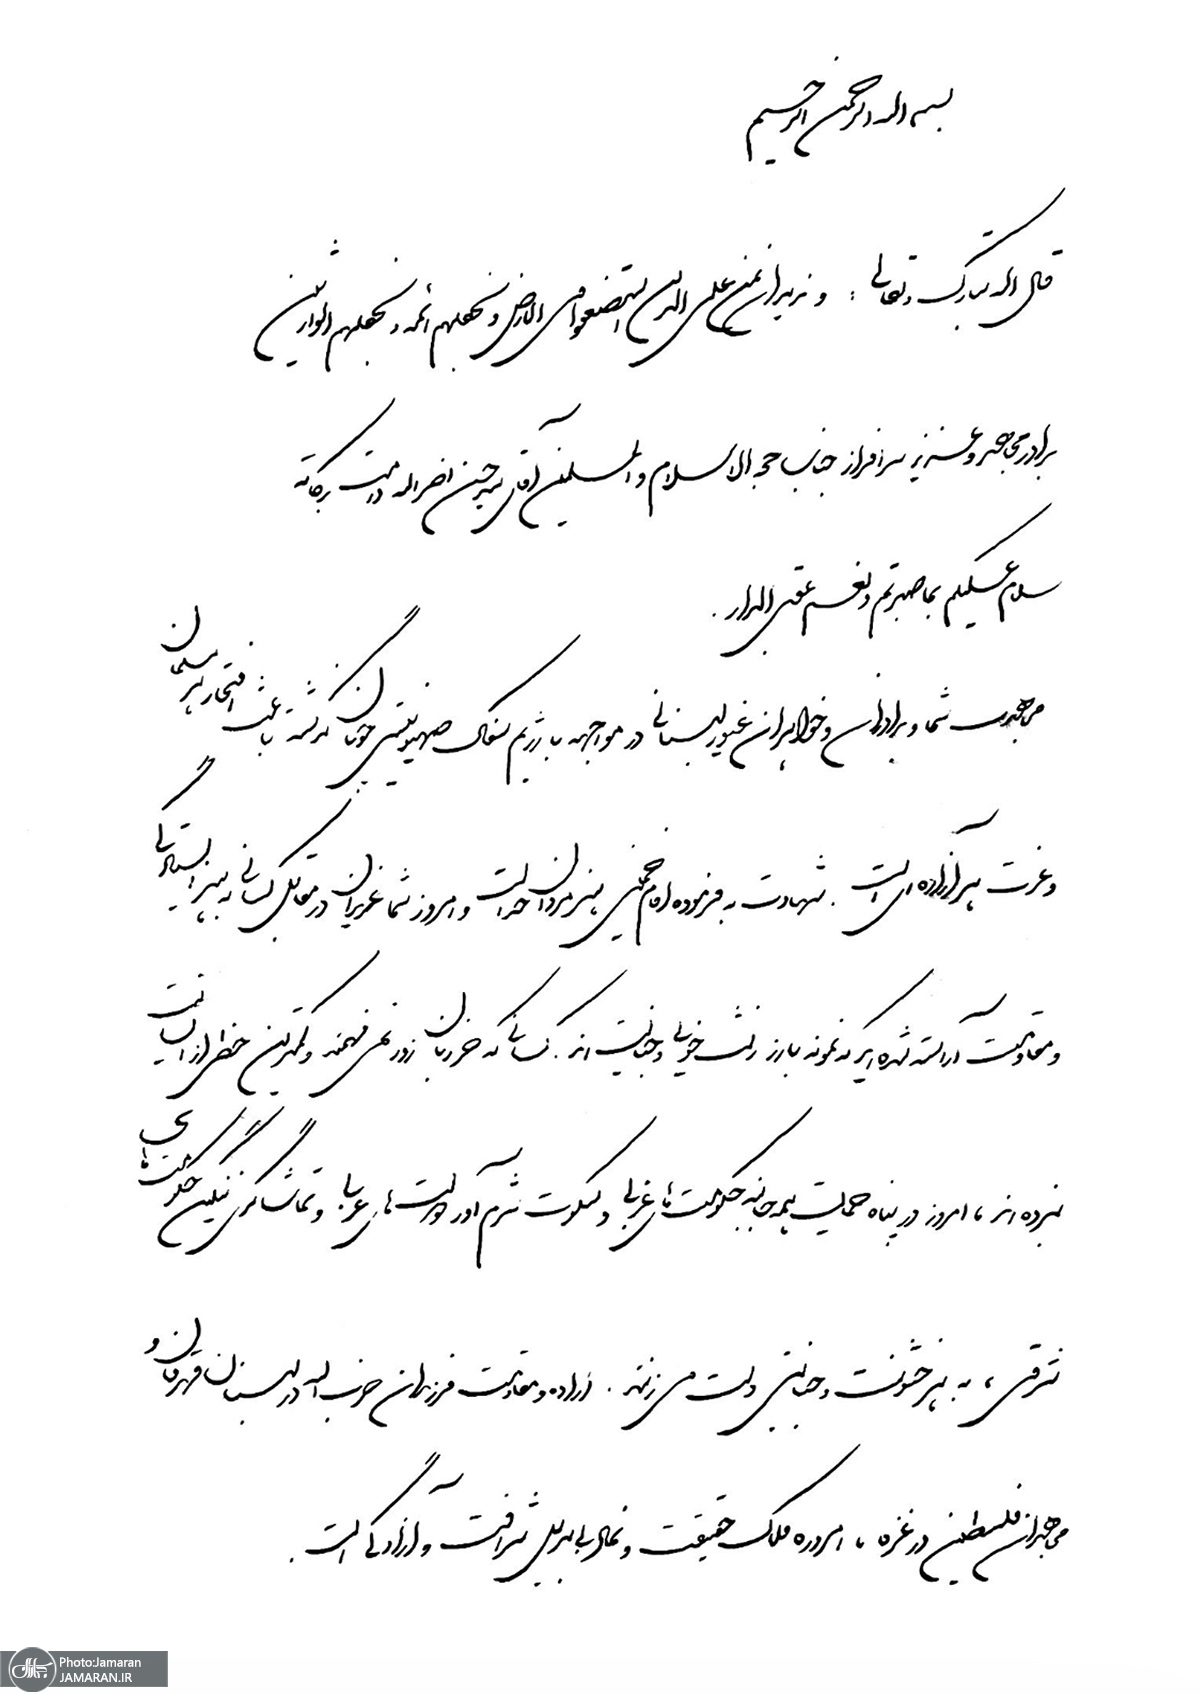 بسم الله الرحمن الرحیم
قال الله تبارک و تعالی : و نرید ان نمن علی الذین استضعفوا فی الارض و نجعلهم ائمه و نجعلهم الوارثین
برادر مجاهد و عزیز سرافراز جناب حجة الاسلام و المسلمین آقای سید حسن نصر الله دامت برکاته
سلام علیکم بما صبرتم و نعم عقبی الدار .
مجاهدت شما و برادران و خواهران غیور لبنانی در مواجهه با رژیم سفاک صهیونیستی چونان گذشته باعث افتخار هر مسلمان
و عزت هر آزاده ای است . شهادت به فرموده امام خمینی هنر مردان خداست و امروز شما عزیزان در مقابل کسانی به هنر ایستادگی
و مقاومت آراسته شده اید که نمونه بارز زشت خویی و جنایت اند . کسانی که جز زبان زور نمی فهمند و کمترین حظی از انسانیت
نبرده اند ، امروز در پناه حمایت همه جانبه حکومت های غربی و سکوت شرم آور دولت های عربی و تماشاگری ننگین حکومت های
شرقی ، به هر خشونت و جنایتی دست می زنند . اراده و مقاومت فرزندان حزب الله در لبنان قهرمان و
مجاهدان فلسطین در غزه ، امروزه ملاک حقیقت و نماد بی بدیل شرافت و آزادگی است .
Photo:Jamaran
JAMARAN.IR
جماران